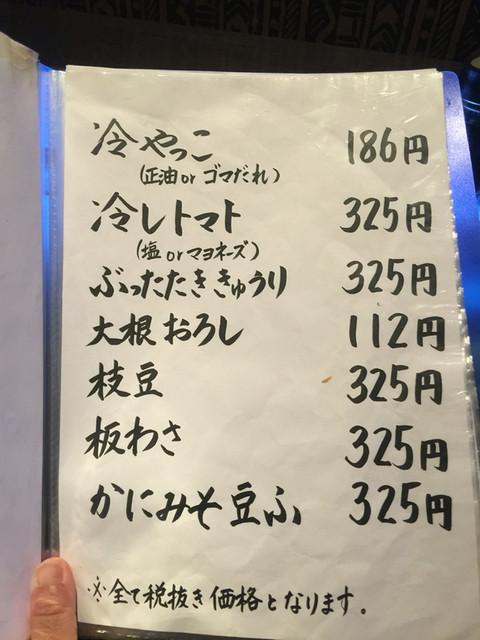 冷やっこ 186円
(正油orゴマだれ)
冷しトマト 325円
(塩orマヨネーズ)
ぶったたききゅうり 325円
大根おろし 112円
枝豆 325円
板わさ 325円
かにみそ豆ふ 325円
※全て税抜き価格となります。